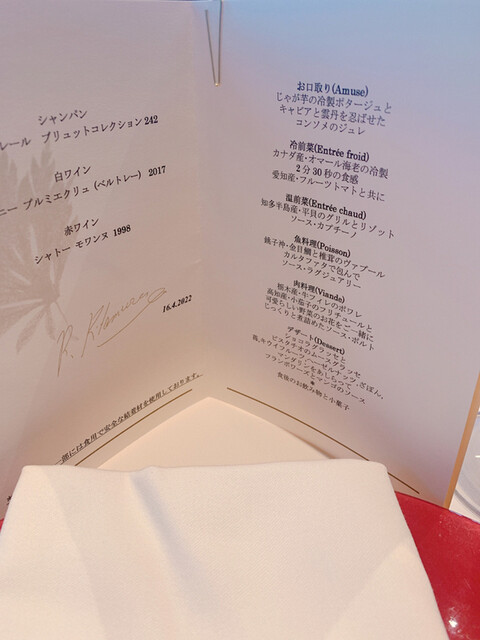 シャンパン
レール ブリュットコレクション242
白ワイン
ニー プルミエクリュ (ベルトレー) 2017
赤ワイン
シャトー モワンヌ 1998
16.4.2022
一部には食用で安全な結着材を使用しております。
お口取り(Amuse)
じゃが芋の冷製ポタージュと
キャビアと雲丹を忍ばせた
コンソメのジュレ
冷前菜(Entrée froid)
カナダ産・オマール海老の冷製
2分30秒の食感
愛知産・フルーツトマトと共に
温前菜(Entrée chaud)
知多半島産・平貝のグリルとリゾット
ソース・カプチーノ
魚料理(Poisson)
銚子沖・金目鯛と椎茸のヴァプール
カルタファタで包んで
ソース・ラグジュアリー
肉料理(Viande)
栃木産・牛フィレのポワレ
高知産・小茄子のフリチュールと
可愛らしい野菜のお花をご一緒に
じっくりと煮詰めたソース・ポルト
デザート(Dessert)
ショコラグラッセと
ピスタチオのムースグラッセ
苺,キウイフルーツ,ヘーゼルナッツ,ざぼん,
マンダリンをあしらって
フランボワーズとマンゴのソース
*
食後のお飲み物と小菓子